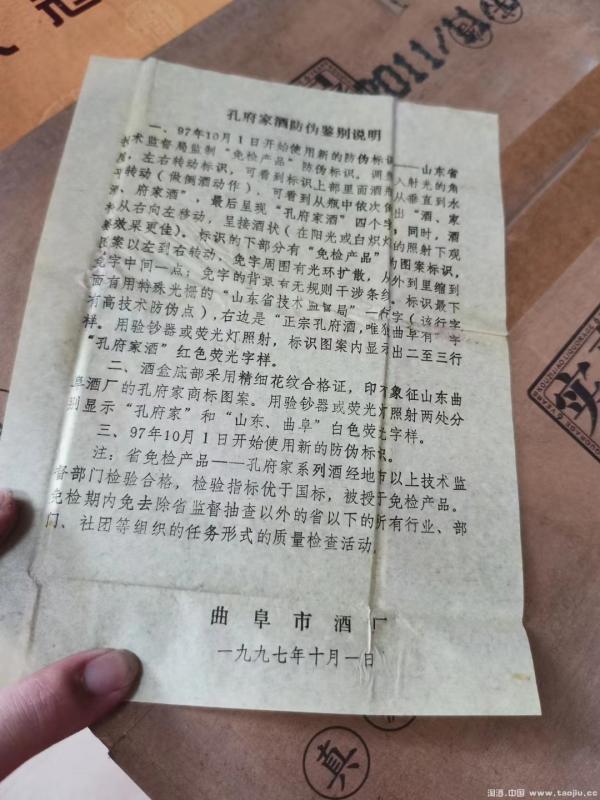 2011/1
孔府家酒防伪鉴别说明
一、97年10月1日开始使用新的防伪标识——山东省
技术监督局监制“免检产品”防伪标识。调 入射光的角
，左右转动标识，可看到标识上部里面酒瓶从垂直到水
平转动（做倒酒动作）、可看到从瓶中依次倒出“酒、家
、府家酒”，最后呈现“孔府家酒”四个字，同时，酒
从右向左移动，呈接酒状（在阳光或白炽灯的照射下观
察效果更佳）。标识的下部分有“免检产品”为图案标识，
图案以左到右转动，免字周围有光环扩散，从外到里缩到
免字中间一点；免字的背景有无规则干涉条纹。标识最下
面有用特殊光栅的“山东省技术监督局”一行字（该行字
有高技术防伪点），右边是“正宗孔府酒，唯独曲阜有”字
样。用验钞器或荧光灯照射，标识图案内显示出二至三行
“孔府家酒”红色荧光字样。
二、酒盒底部采用精细花纹合格证，印有象征山东曲
阜酒厂的孔府家商标图案。用验钞器或荧光灯照射两处分
别显示“孔府家”和“山东、曲阜”白色荧光字样。
三、97年10月1日开始使用新的防伪标识。
注：省免检产品——孔府家系列酒经地市以上技术监
督部门检验合格，检验指标优于国标，被授予免检产品。
免检期内免去除省监督抽查以外的省以下的所有行业、部
门、社团等组织的任务形式的质量检查活动。
曲阜市酒厂
一九九七年十月一日
实
真
淘酒.中国 www.taojiu.cc